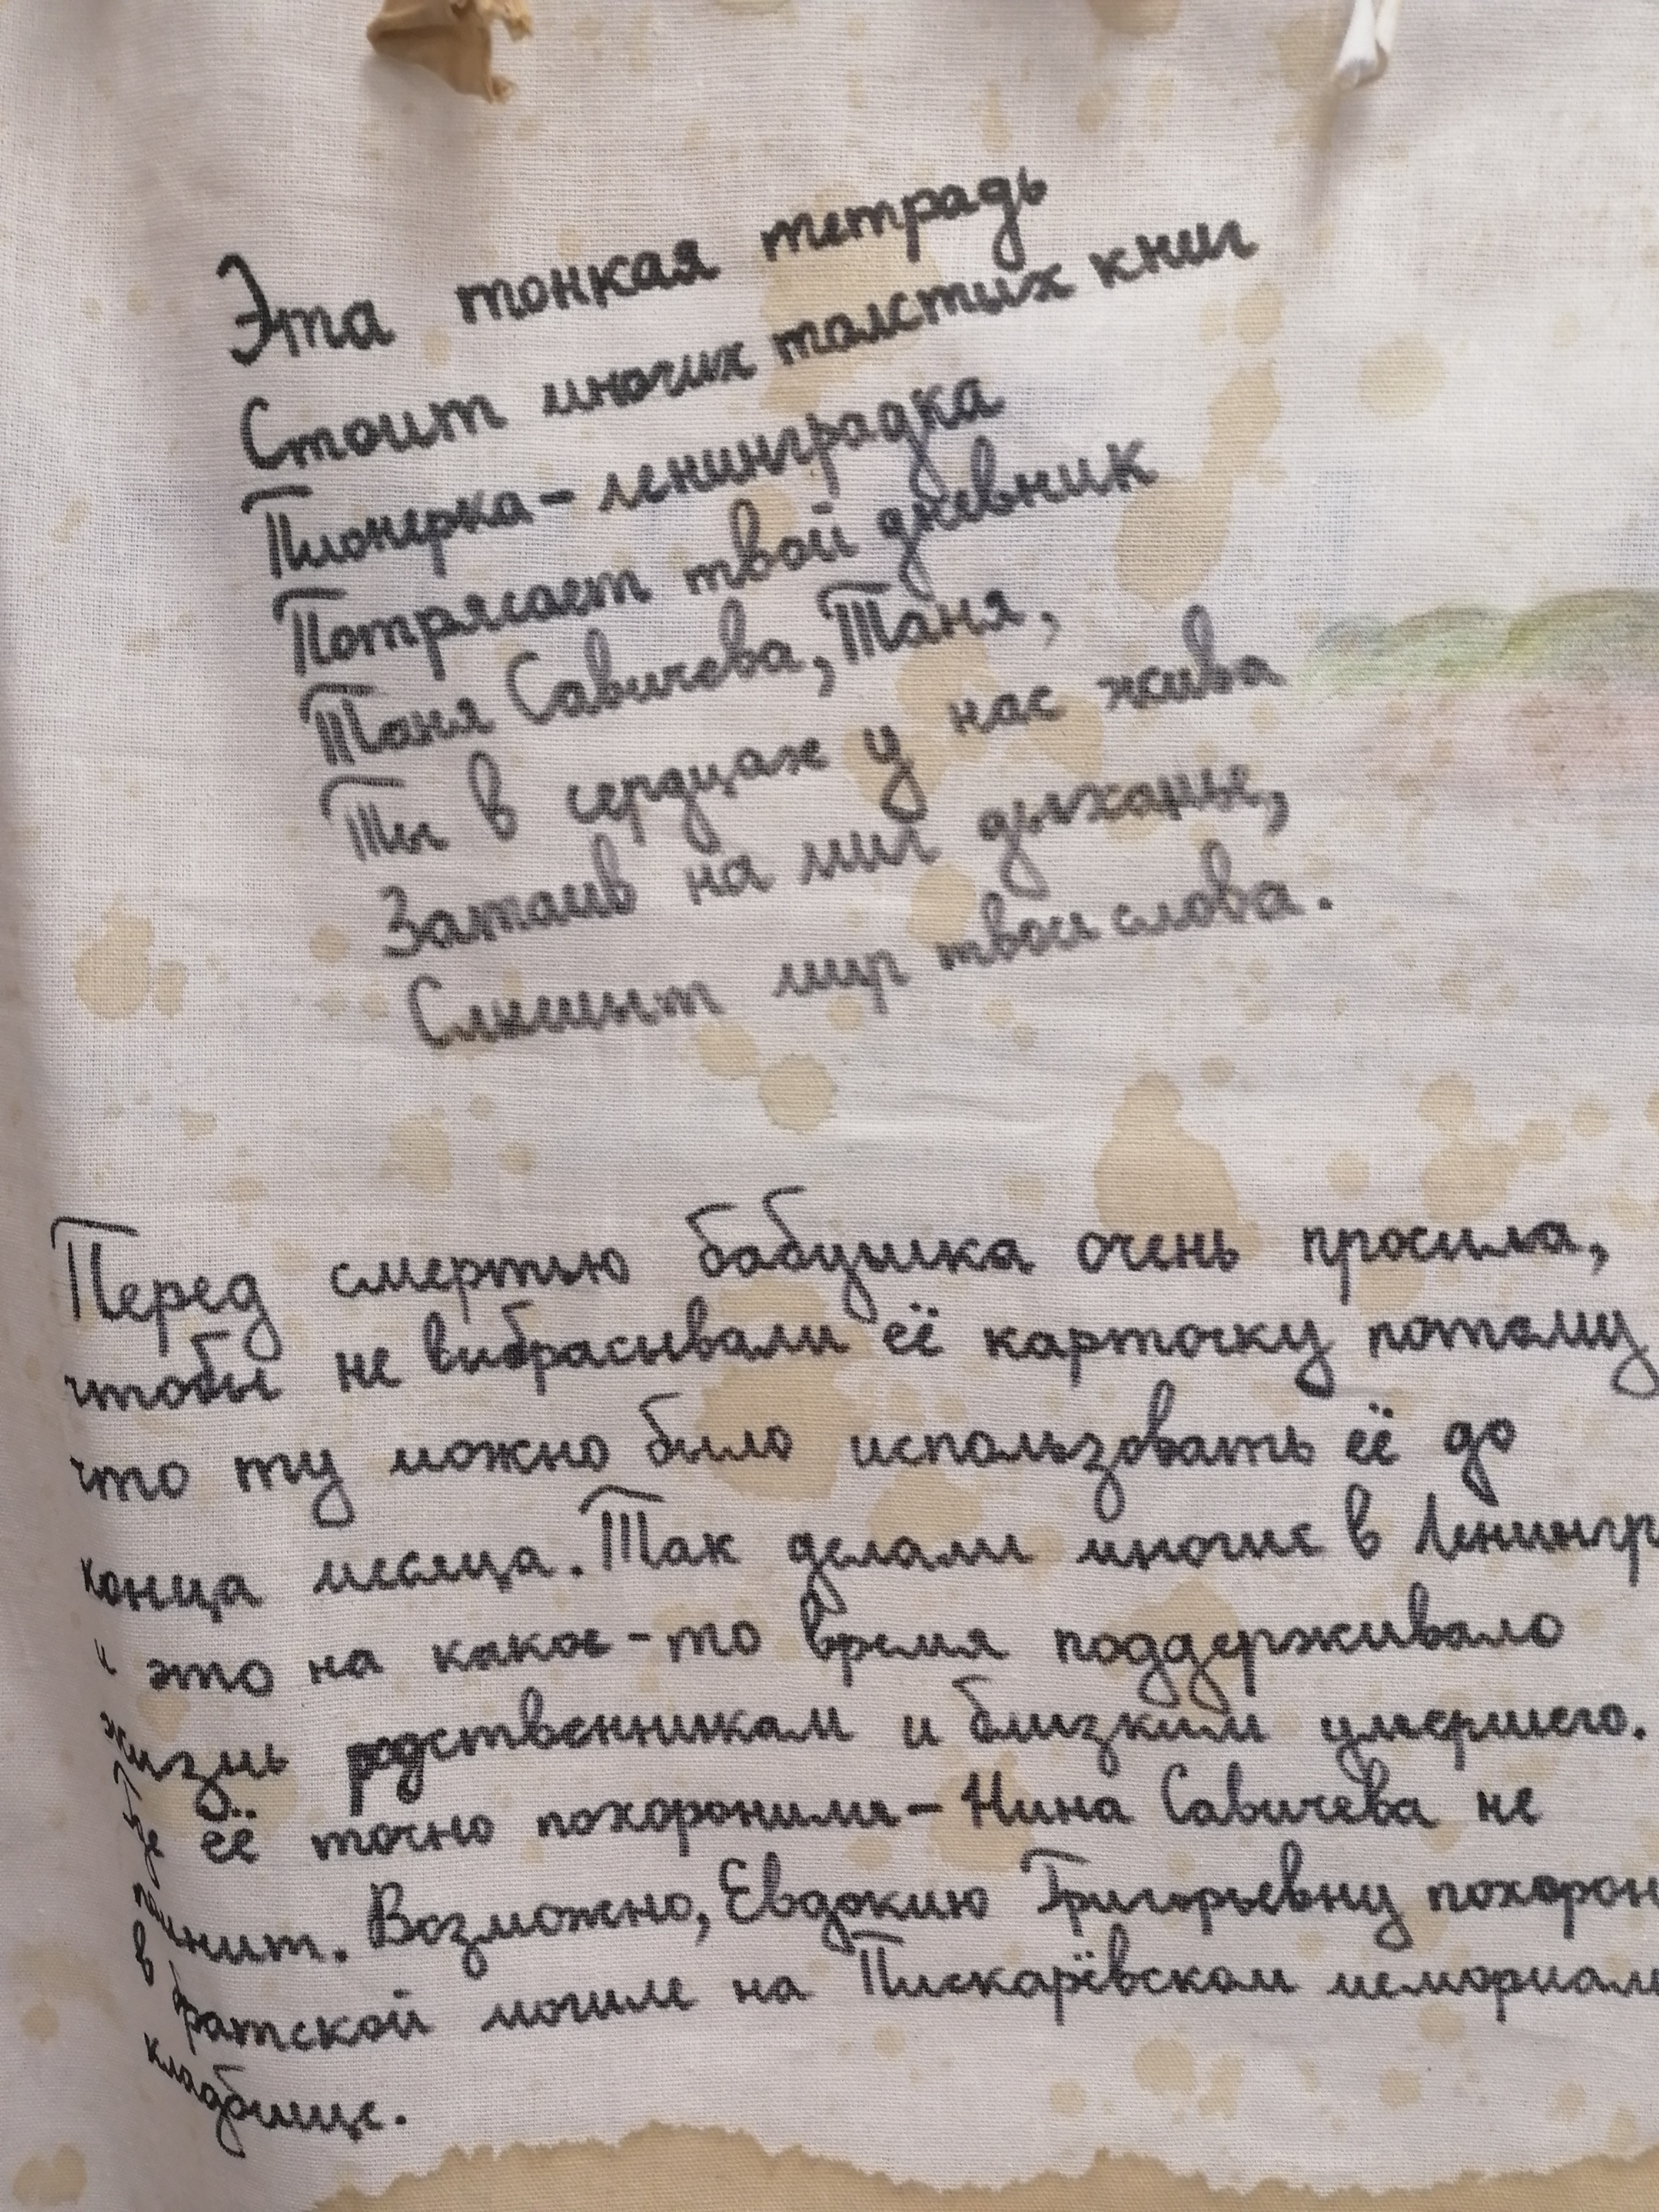 Эта тонкая тетрадь
Стоит многих толстых книг
Пионерка-ленинградка
Потрясает твой дневник
Таня Савичева, Таня,
Ты в сердцах у нас жива
Затаив на миг дыханье,
Слышит мир твои слова.
Перед смертью бабушка очень просила,
чтобы не выбрасывали её карточку потому
что ту можно было использовать её до
конца месяца. Так делали многие в Ленингр
и это на какое-то время поддерживало
жизнь родственникам и близким умершего.
Где её точно похоронили- Нина Савичева не
помнит. Возможно, Евдокию Григорьевну похорон
в братской могиле на Пискарёвском мемориаль
кладбище.